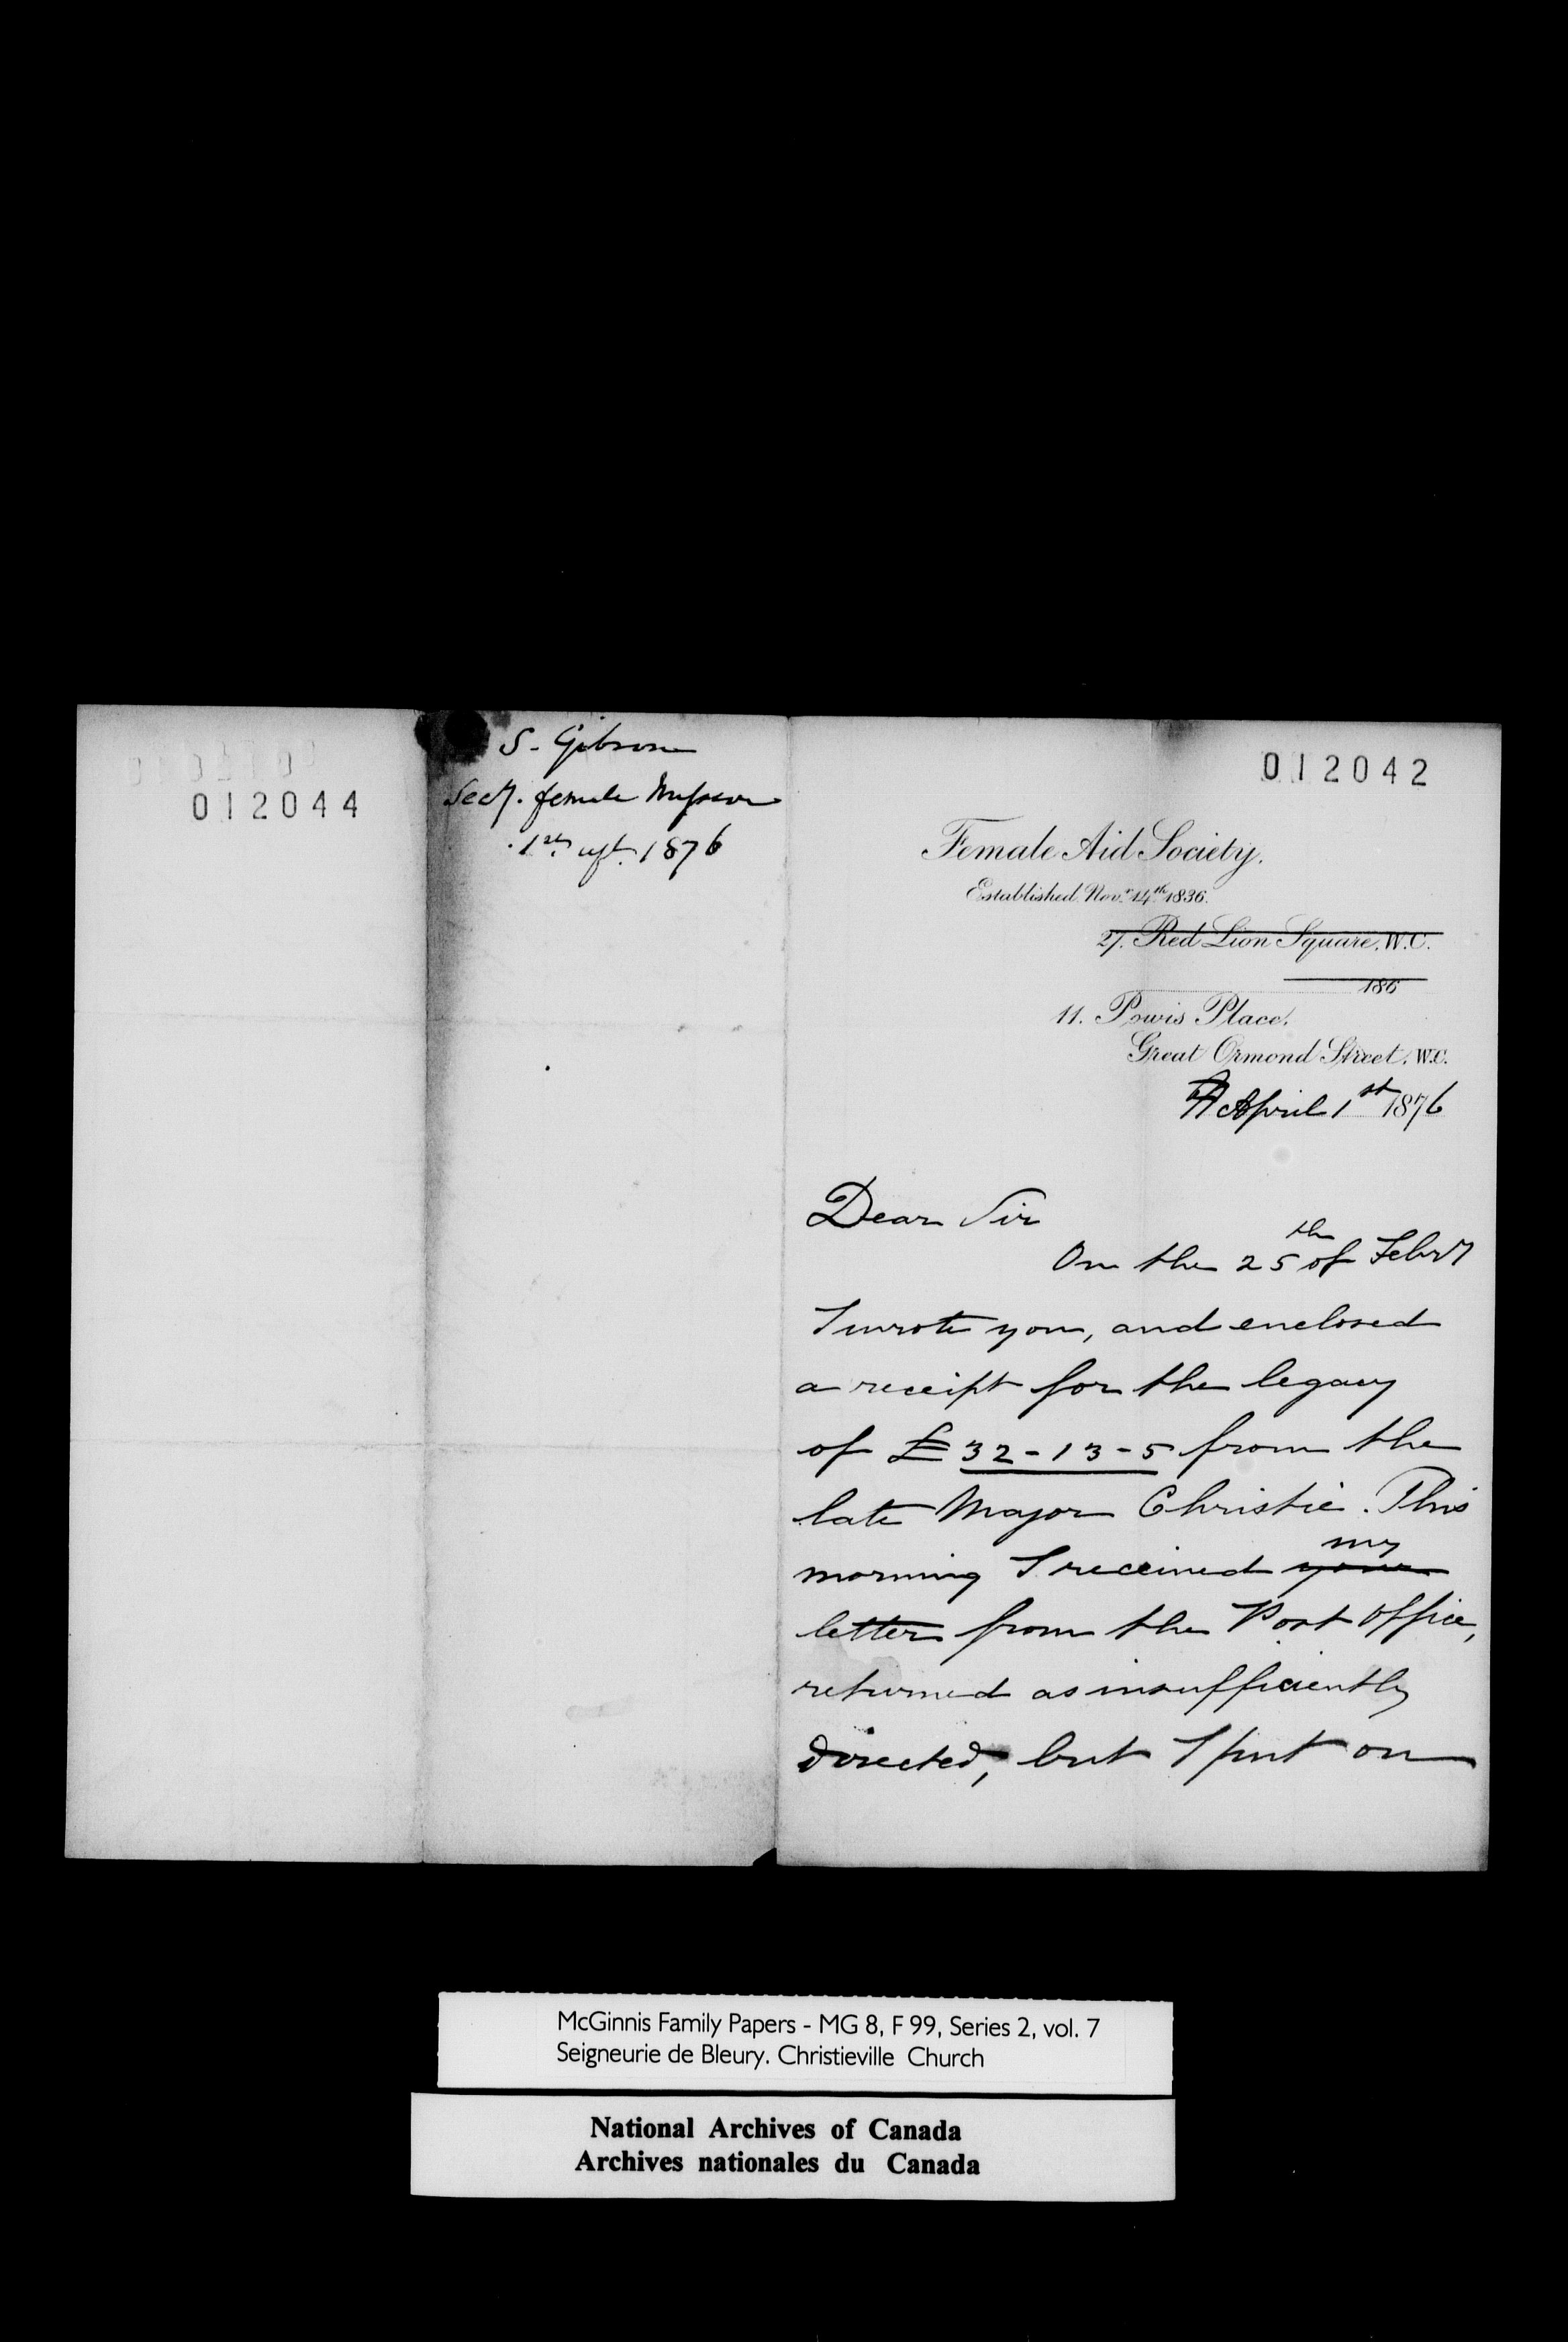 012044
S. Gibson
Secy. female Mission
1st apl. 1876
012042
Female Aid Society.
Established Novr. 14th 1836.
27. Red Lion Square. W.C.
186
11. Powis Place.
Great Ormond Street. W.C.
April 1st 1876
Dear Sir
On the 25th of Febry
I wrote you, and enclosed
a receipt for the legacy
of £32-13-5 from the
late Major Christie. This
morning I received your my
letter from the Post Office,
returned as insufficiently
directed, but I put on
McGinnis Family Papers - MG 8, F 99, Series 2, vol. 7
Seigneurie de Bleury. Christieville Church
National Archives of Canada
Archives nationales du Canada